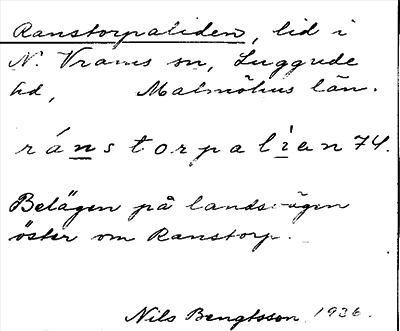 Ranstorpaliden, lid i
N. Vrams sn, Luggude
hd, Malmöhus län.
ránstorpalían 74.
Belägen på landsvägen
öster om Ranstorp.
Nils Bengtsson 1936.